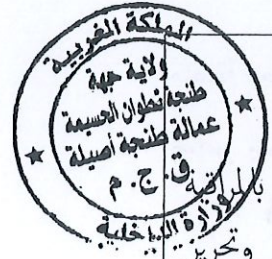 المملكة المغربية
ولاية جهة
طنجة تطوان الحسيمة
عمالة طنجة أصيلة
ق. ج. م
وزارة الداخلية